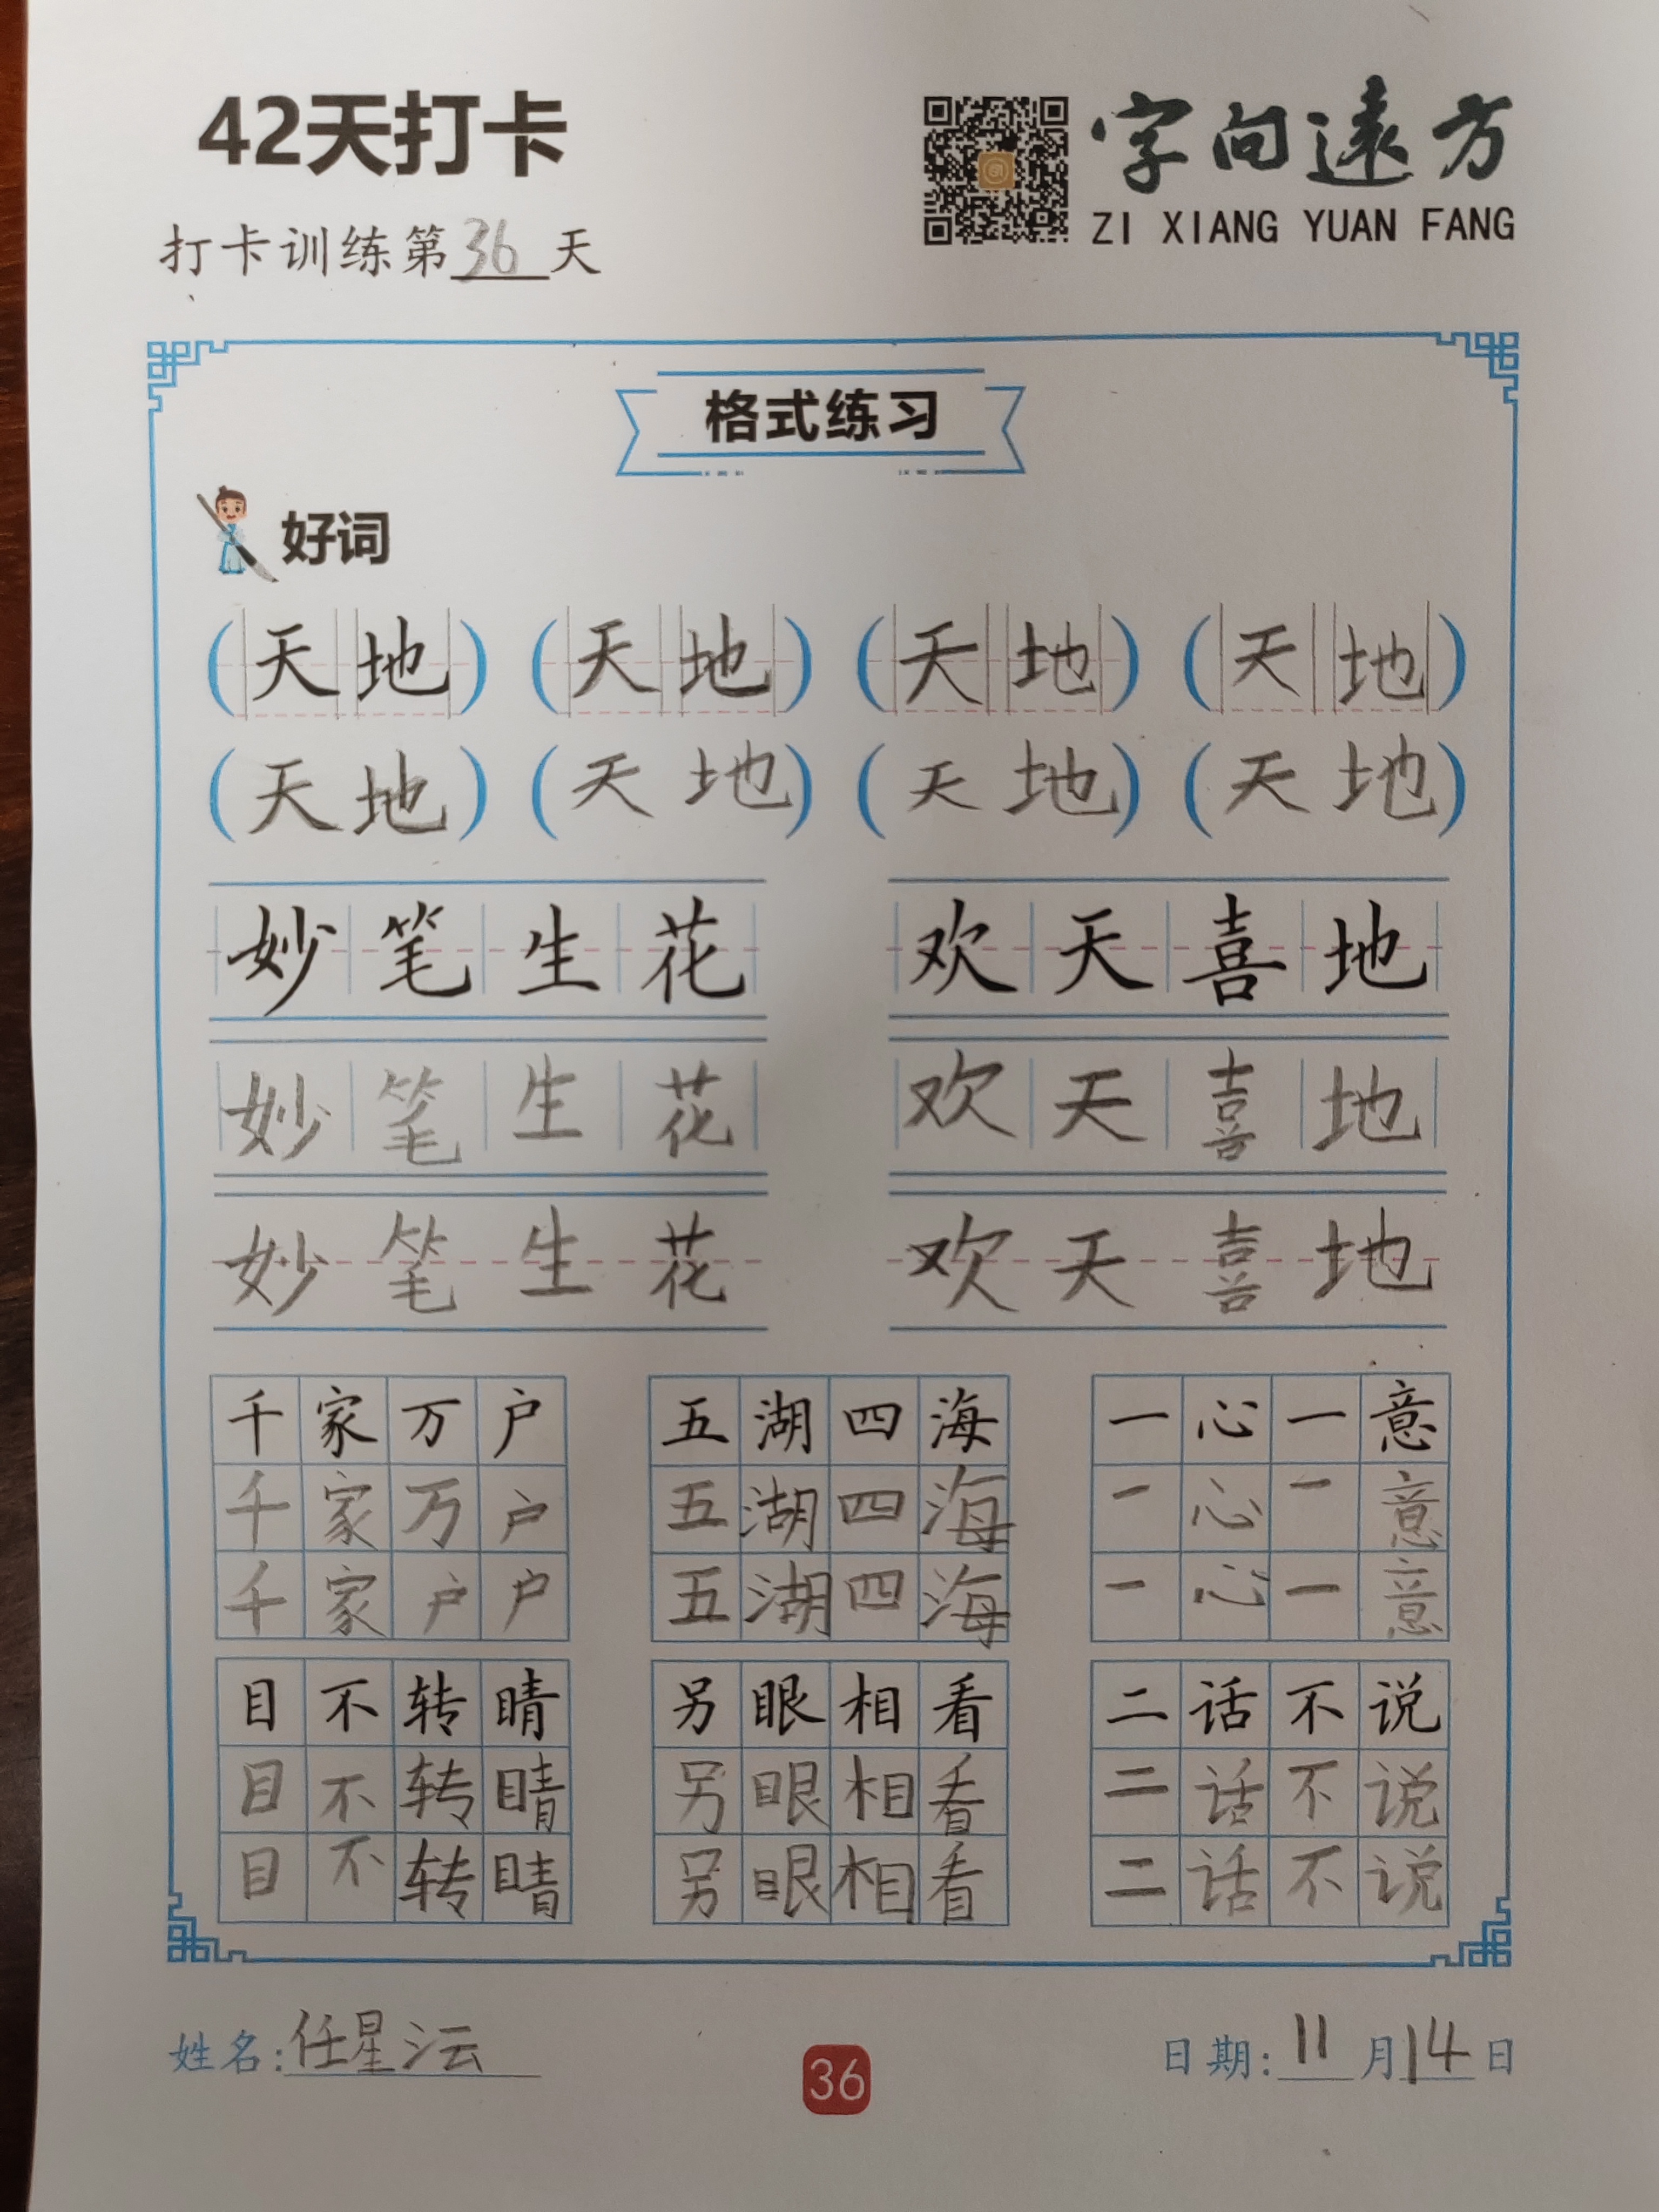 42天打卡
字向遠方
ZI XIANG YUAN FANG
打卡训练第36天
格式练习
好词
(天地) (天地) (天地) (天地)
(天地) (天地) (天地) (天地)
妙笔生花 欢天喜地
妙笔生花 欢天喜地
妙笔生花 欢天喜地
千家万户 五湖四海 一心一意
千家万户 五湖四海 一心一意
千家户户 五湖四海 一心一意
目不转睛 另眼相看 二话不说
目不转睛 另眼相看 二话不说
目不转睛 另眼相看 二话不说
姓名:任星沄 36 日期:11月14日